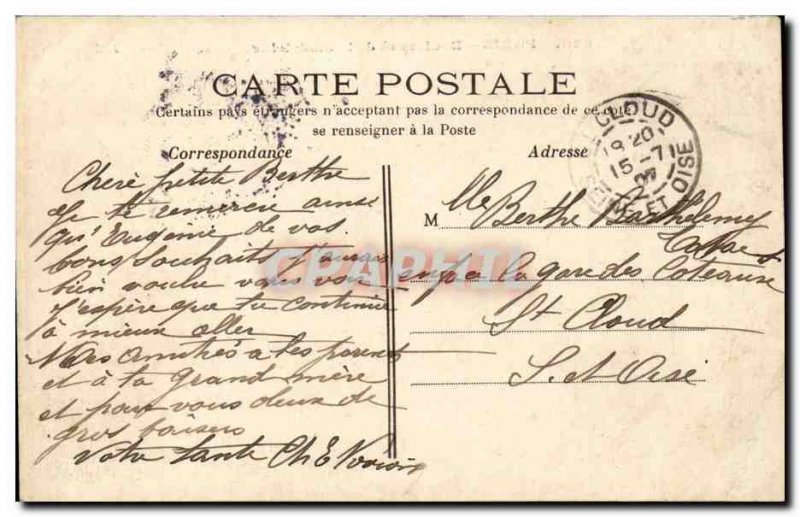 CARTE POSTALE
Certains pays étrangers n'acceptant pas la correspondance de ce coté
se renseigner à la Poste
Correspondance
Adresse
CLOUD
18 20
15 - 7
07
ET OISE
Chère petite Berthe
Je te remercie ainsi
qu'Eugénie de vos
bons souhaits J'aurais
bien voulu vous voir
J'espère que tu continue
à mieux aller
Mes amitiés à tes parents
et à ta grand mère
et pour vous deux de
gros baisers
Votre tante Ch E
M lle Berthe Barthelemy
en face la gare des Coteaux
St Cloud
S. et Oise
CPAPHIL